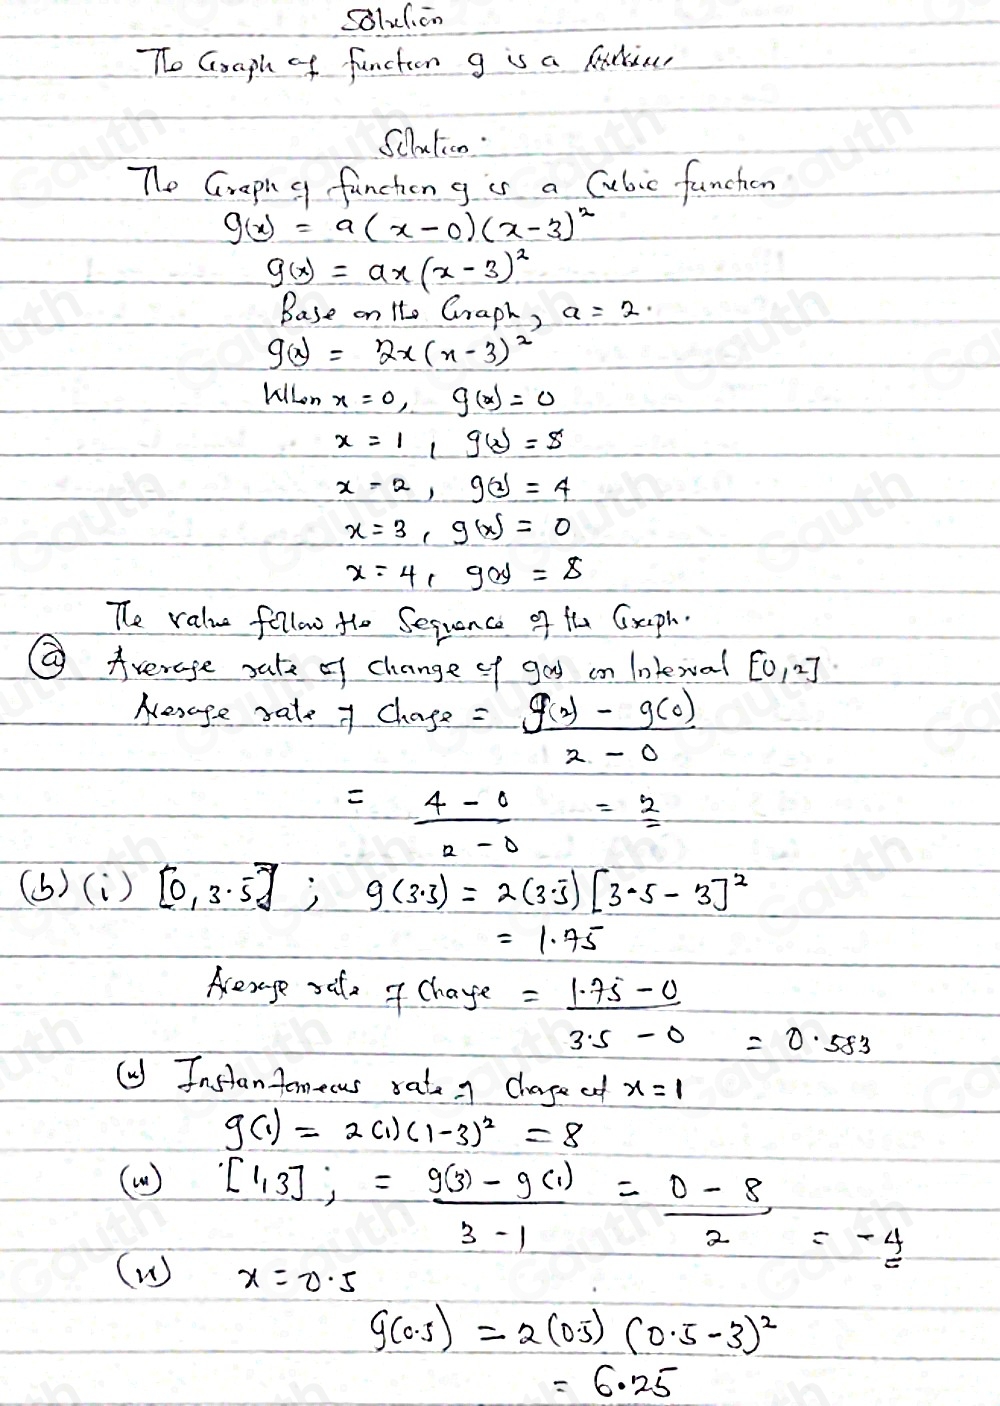 Solution
The Graph of function g is a
Solution.
The Graph of function g is a Cubic function.
g(x) = a(x-0)(x-3)²
g(x) = ax(x-3)²
Base on the Graph, a = 2.
g(x) = 2x(x-3)²
When x = 0, g(x) = 0
x = 1, g(x) = 8
x = 2, g(x) = 4
x = 3, g(x) = 0
x = 4, g(x) = 8
The value follow the Sequence of the Graph.
(a) Average rate of change of g(x) on Interval [0,2].
Average rate of change = g(2) - g(0) / 2 - 0
= 4 - 0 / 2 - 0 = 2
(b) (i) [0, 3.5]; g(3.5) = 2(3.5)[3.5-3]²
= 1.75
Average rate of change = 1.75 - 0 / 3.5 - 0 = 0.583
(ii) Instantaneous rate of change at x = 1
g(1) = 2(1)(1-3)² = 8
(iii) [1,3]; = g(3) - g(1) / 3 - 1 = 0 - 8 / 2 = -4
(iv) x = 0.5
g(0.5) = 2(0.5)(0.5-3)²
= 6.25